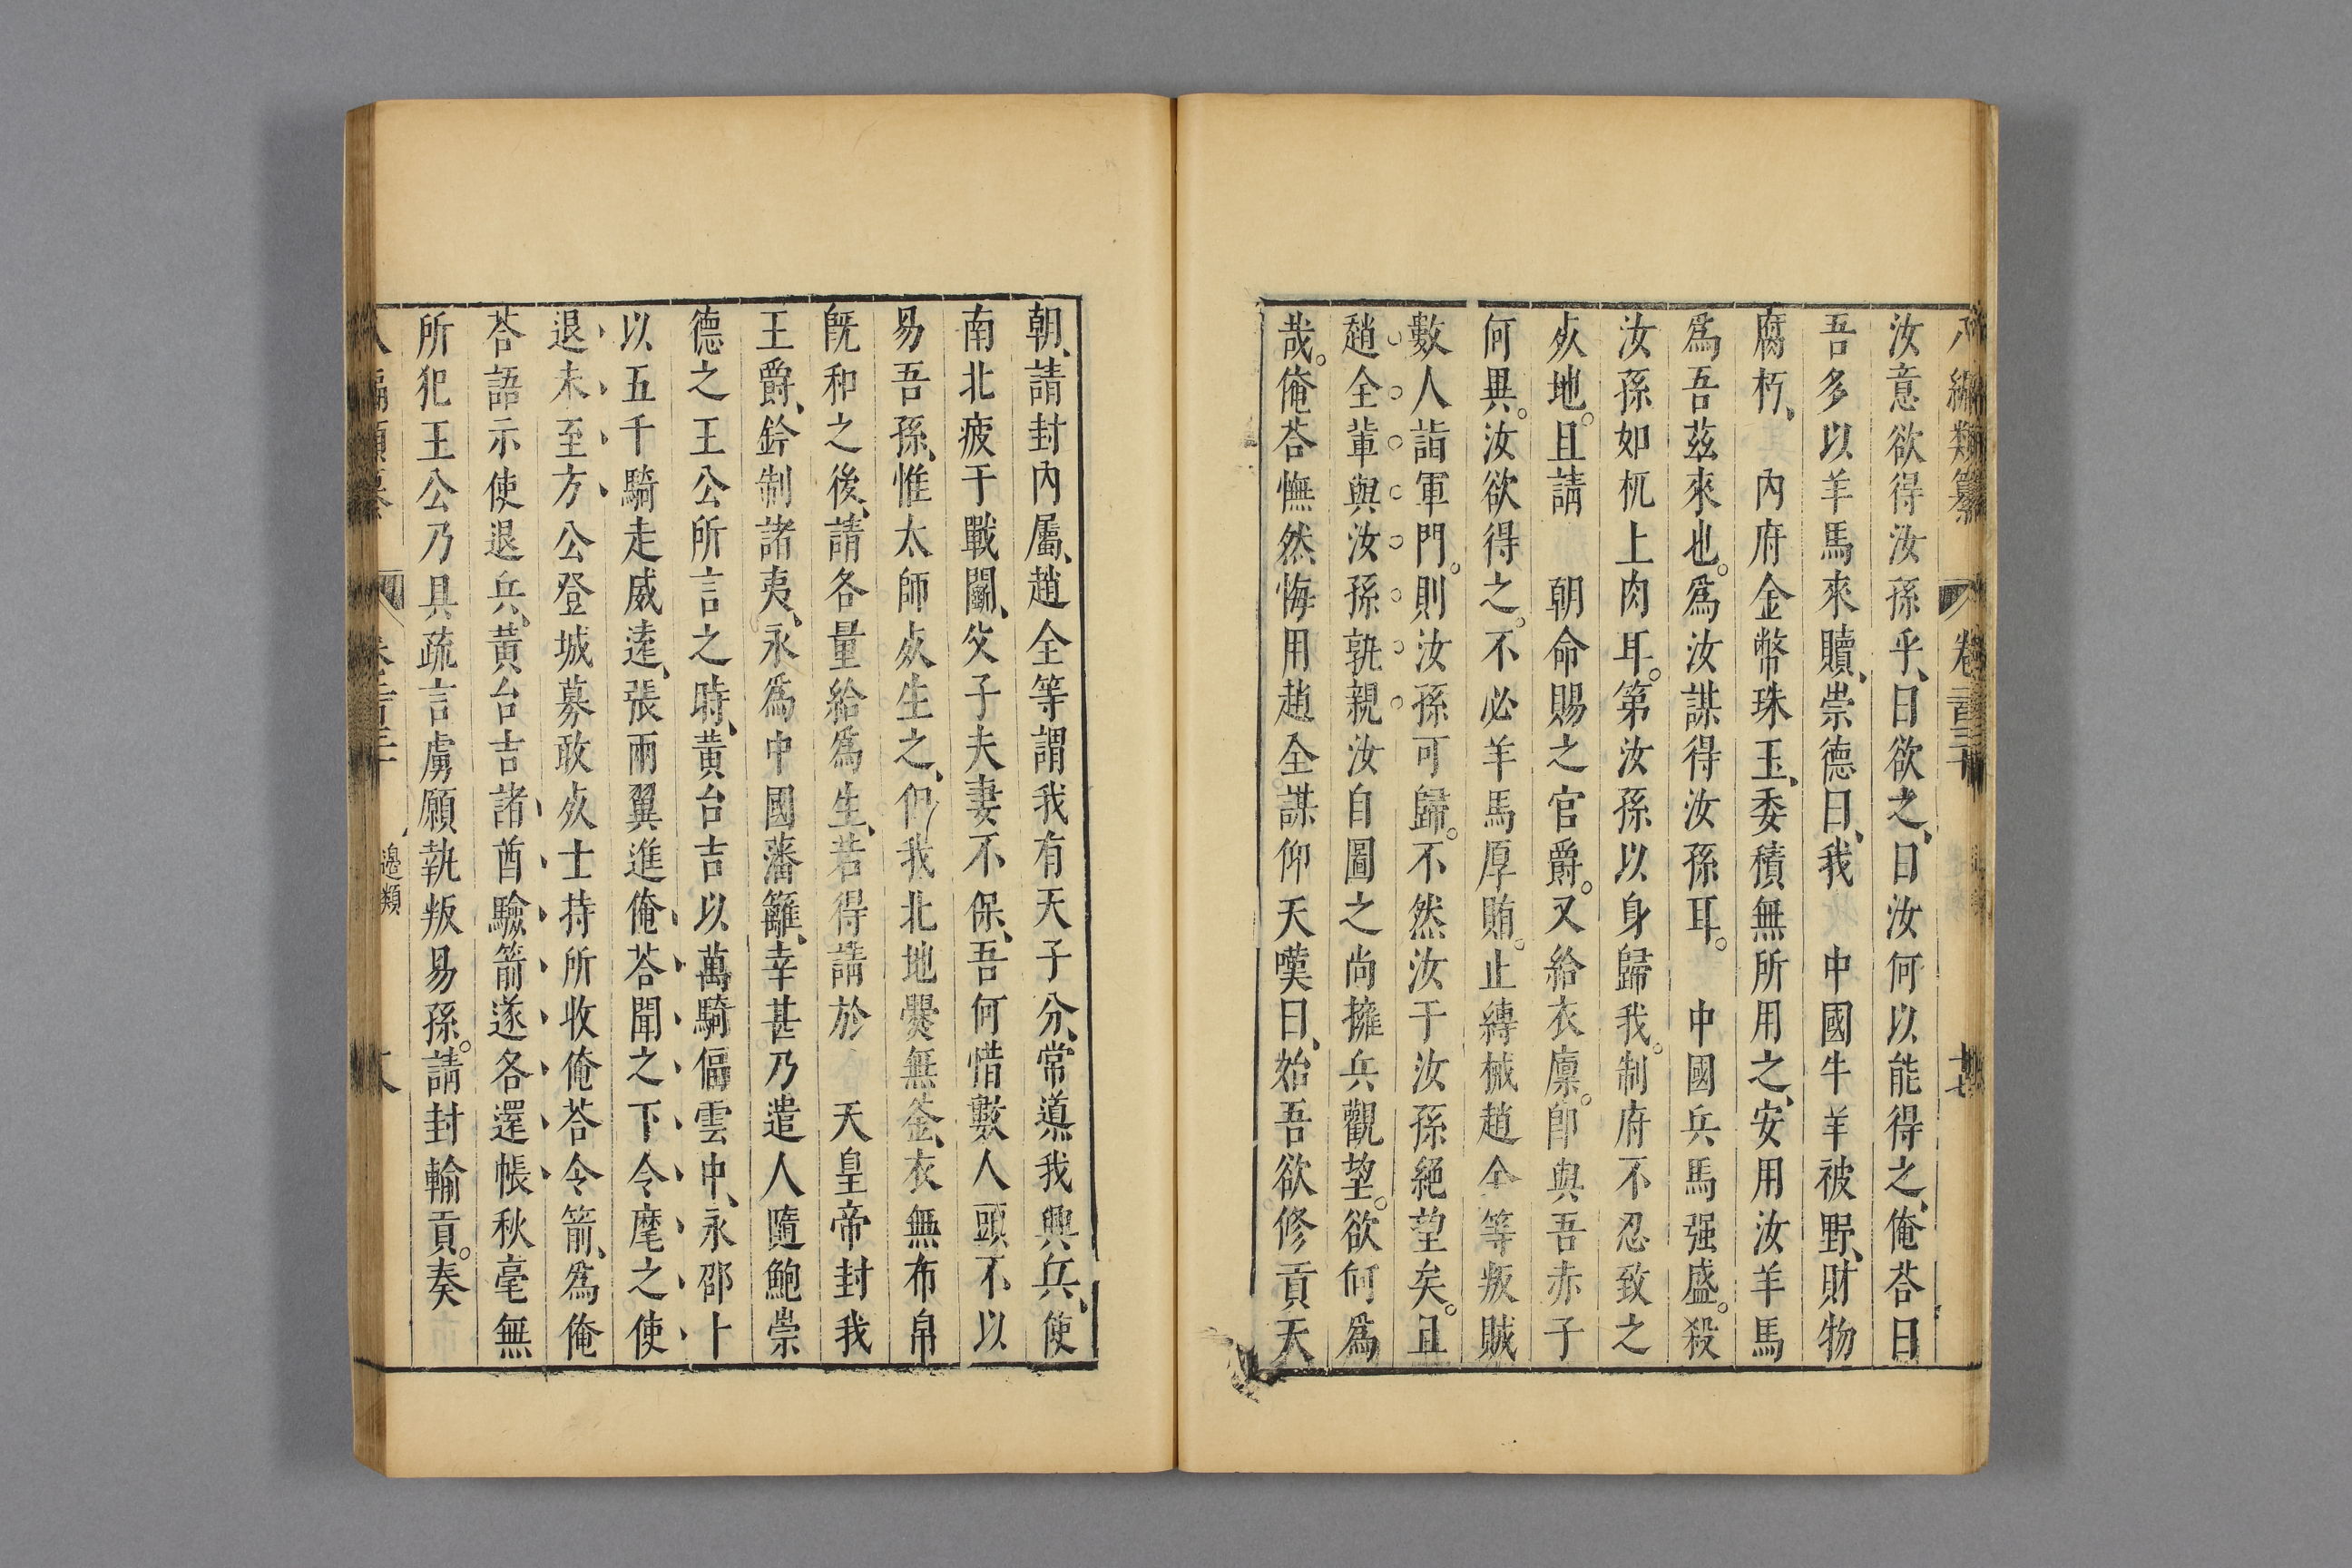 八編類纂 卷二百三十 十七
汝意欲得汝孫乎、曰欲之、曰汝何以能得之、俺荅曰
吾多以羊馬來贖、崇德曰、我 中國牛羊被野、財物
腐朽、 內府金幣珠玉、委積無所用之、安用汝羊馬
爲吾兹來也。爲汝謀得汝孫耳。 中國兵馬强盛。殺
汝孫如机上肉耳。第汝孫以身歸我。制府不忍致之
灰地。且請 朝命賜之官爵。又給衣廪。卽與吾赤子
何異。汝欲得之。不必羊馬厚賄。止縛械趙全等叛賊
數人詣軍門。則汝孫可歸。不然汝于汝孫絕望矣。且
趙全軰與汝孫孰親汝自圖之尚擁兵觀望。欲何爲
哉。俺荅憮然悔用趙全謀仰天嘆曰、始吾欲修貢天
朝、請封內屬、趙全等謂我有天子分、常導我興兵、使
南北疲于戰鬭、父子夫妻不保、吾何惜數人頭不以
易吾孫、惟太師灰生之、但我北地爨無釜、衣無布帛
旣和之後、請各量給爲生、若得請於 天皇帝封我
王爵、鈐制諸夷、永爲中國藩籬、幸甚乃遣人隨鮑崇
德之王公所言之時、黄台吉以萬騎偪雲中、永邵卜
以五千騎走威遠、張兩翼進俺荅聞之下令麾之使
退未至方公登城募敢灰士持所收俺荅令箭、爲俺
荅語示使退兵、黃台吉諸酋驗箭遂各還帳秋毫無
所犯王公乃具疏言虜願執叛易孫。請封輸貢。奏
邊類